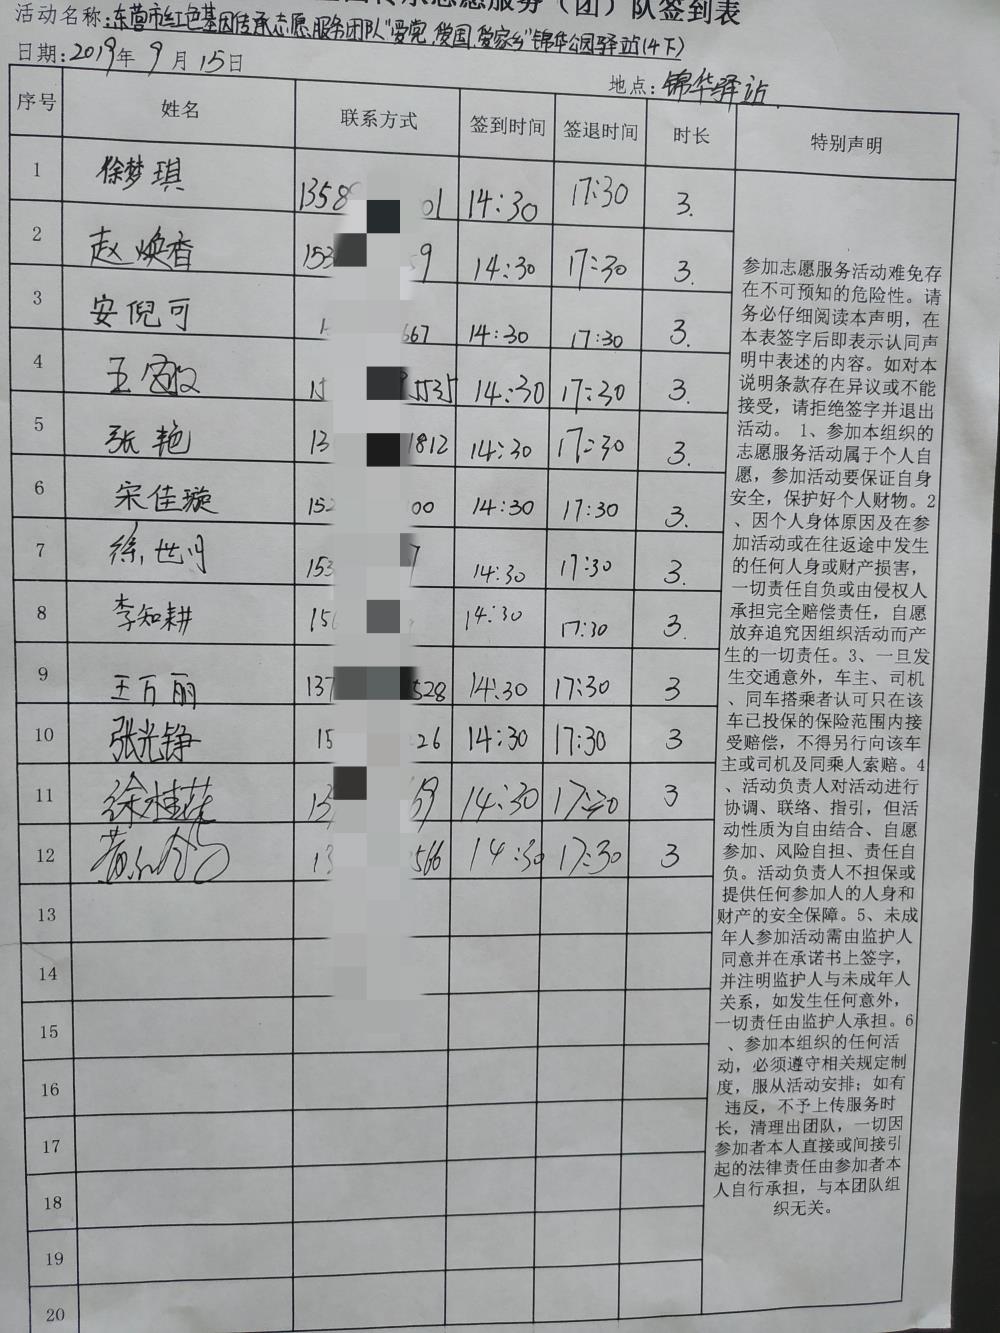 传承志愿服务（团）队签到表
活动名称:东营市红色基因传承志愿服务团队"爱党、爱国、爱家乡"锦华公园驿站(4下)
日期:2019年9月15日
地点:锦华驿站
序号 姓名 联系方式 签到时间 签退时间 时长 特别声明
1 徐梦琪 1358 01 14:30 17:30 3.
2 赵焕香 153 59 14:30 17:30 3.
3 安倪可 1 667 14:30 17:30 3.
4 王 15 5535 14:30 17:30 3.
5 张艳 13 1812 14:30 17:30 3.
6 宋佳璇 152 00 14:30 17:30 3.
7 徐世 153 7 14:30 17:30 3.
8 李知耕 150 14:30 17:30 3.
9 王万丽 137 528 14:30 17:30 3
10 张光铮 15 26 14:30 17:30 3
11 徐桂花 13 69 14:30 17:30 3
12 13 566 14:30 17:30 3
13
14
15
16
17
18
19
20
参加志愿服务活动难免存
在不可预知的危险性。请
务必仔细阅读本声明，在
本表签字后即表示认同声
明中表述的内容。如对本
说明条款存在异议或不能
接受，请拒绝签字并退出
活动。 1、参加本组织的
志愿服务活动属于个人自
愿，参加活动要保证自身
安全，保护好个人财物。2
、因个人身体原因及在参
加活动或在往返途中发生
的任何人身或财产损害，
一切责任自负或由侵权人
承担完全赔偿责任，自愿
放弃追究因组织活动而产
生的一切责任。3、一旦发
生交通意外，车主、司机
、同车搭乘者认可只在该
车已投保的保险范围内接
受赔偿，不得另行向该车
主或司机及同乘人索赔。4
、活动负责人对活动进行
协调、联络、指引，但活
动性质为自由结合、自愿
参加、风险自担、责任自
负。活动负责人不担保或
提供任何参加人的人身和
财产的安全保障。5、未成
年人参加活动需由监护人
同意并在承诺书上签字，
并注明监护人与未成年人
关系，如发生任何意外，
一切责任由监护人承担。6
、参加本组织的任何活
动，必须遵守相关规定制
度，服从活动安排；如有
违反，不予上传服务时
长，清理出团队，一切因
参加者本人直接或间接引
起的法律责任由参加者本
人自行承担，与本团队组
织无关。